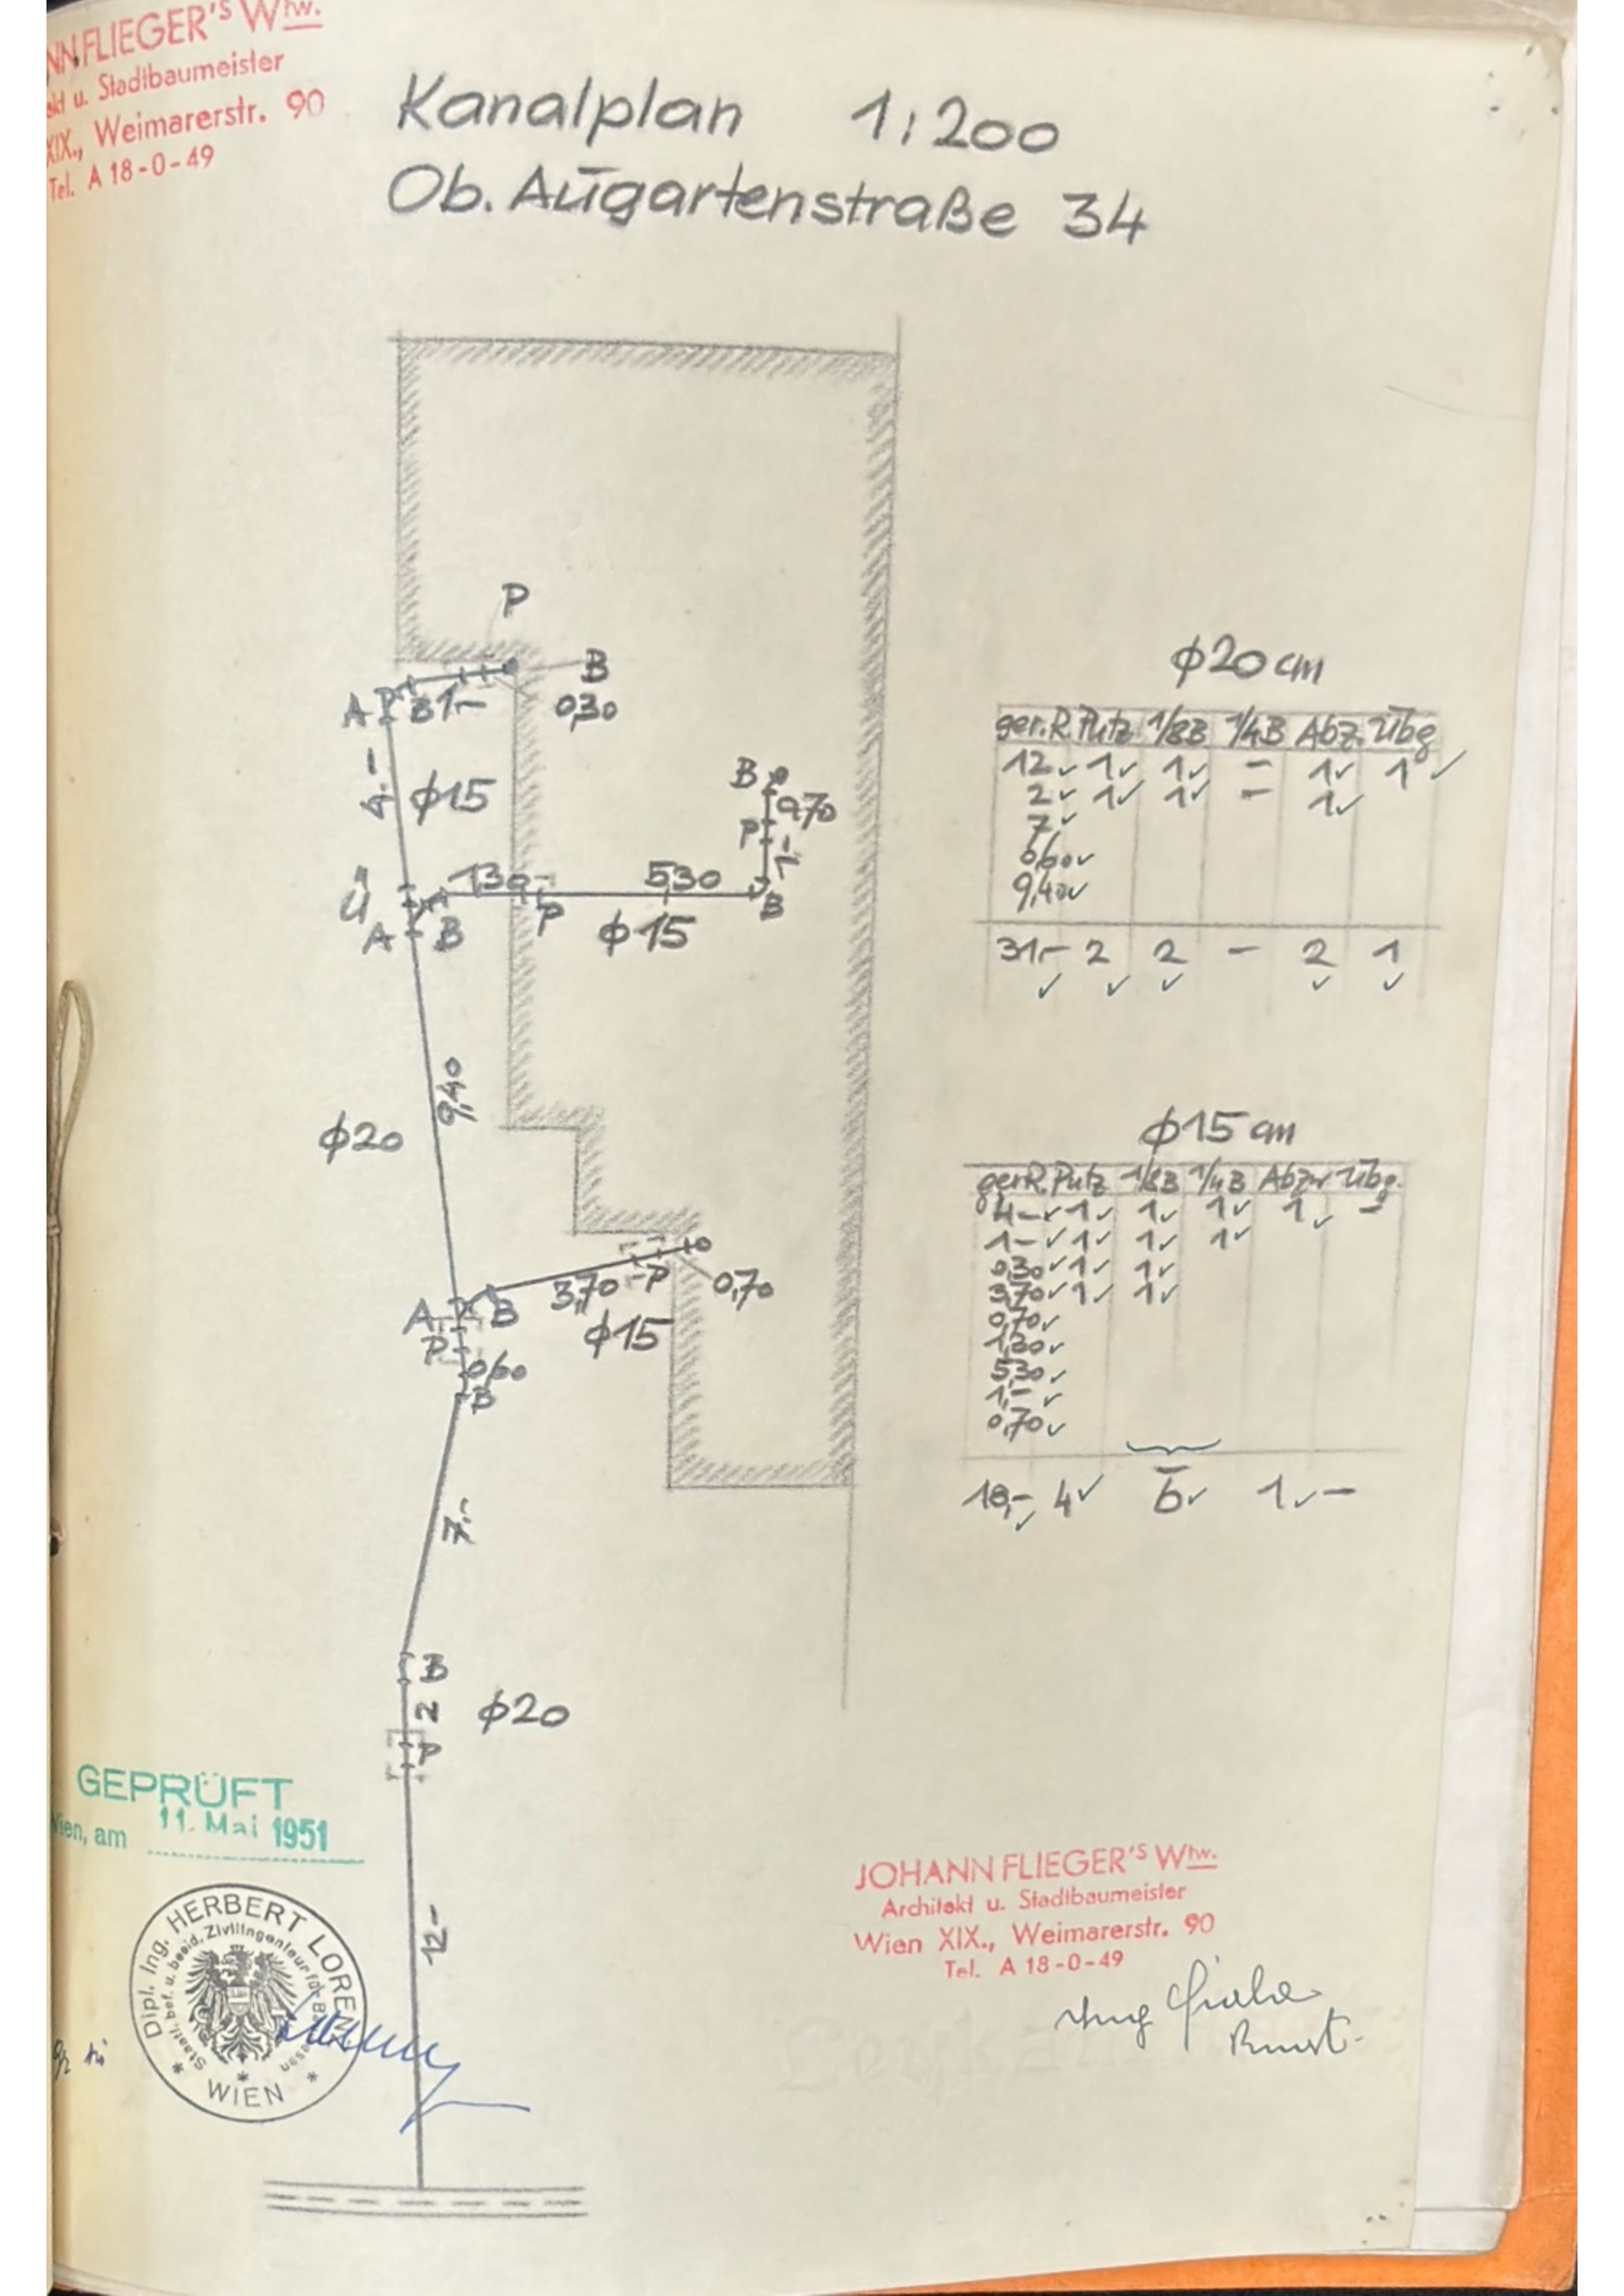 NN FLIEGER'S Wtw.
kt u. Stadtbaumeister
XIX., Weimarerstr. 90
Tel. A 18-0-49
Kanalplan 1:200
Ob. Augartenstraße 34
P
B
A B 1,-
0,30
φ15
B
0,70
P
1,-
Ü
1,30
5,30
B
A B
P
φ15
9,40
φ20
3,70
P
0,70
A B
φ15
P
0,60
B
7.-
B
2
φ20
P
12,-
φ20 cm
ger.R. Putz 1/8B 1/4B Abz. Übg
12 1 1 - 1 1
2 1 1 - 1
7
0,60
9,40
31,- 2 2 - 2 1
φ15 cm
ger.R. Putz 1/8B 1/4B Abzw Übg.
4,- 1 1 1 1 -
1,- 1 1 1
0,30 1 1
3,70 1 1
0,70
1,30
5,30
1,-
0,70
18,- 4 6 1 -
GEPRÜFT
Wien, am 11. Mai 1951
Dipl. Ing. HERBERT LORENZ
Staatl. bef. u. beeid. Zivilingenieur für Bauwesen
* WIEN *
JOHANN FLIEGER'S Wtw.
Architekt u. Stadtbaumeister
Wien XIX., Weimarerstr. 90
Tel. A 18-0-49